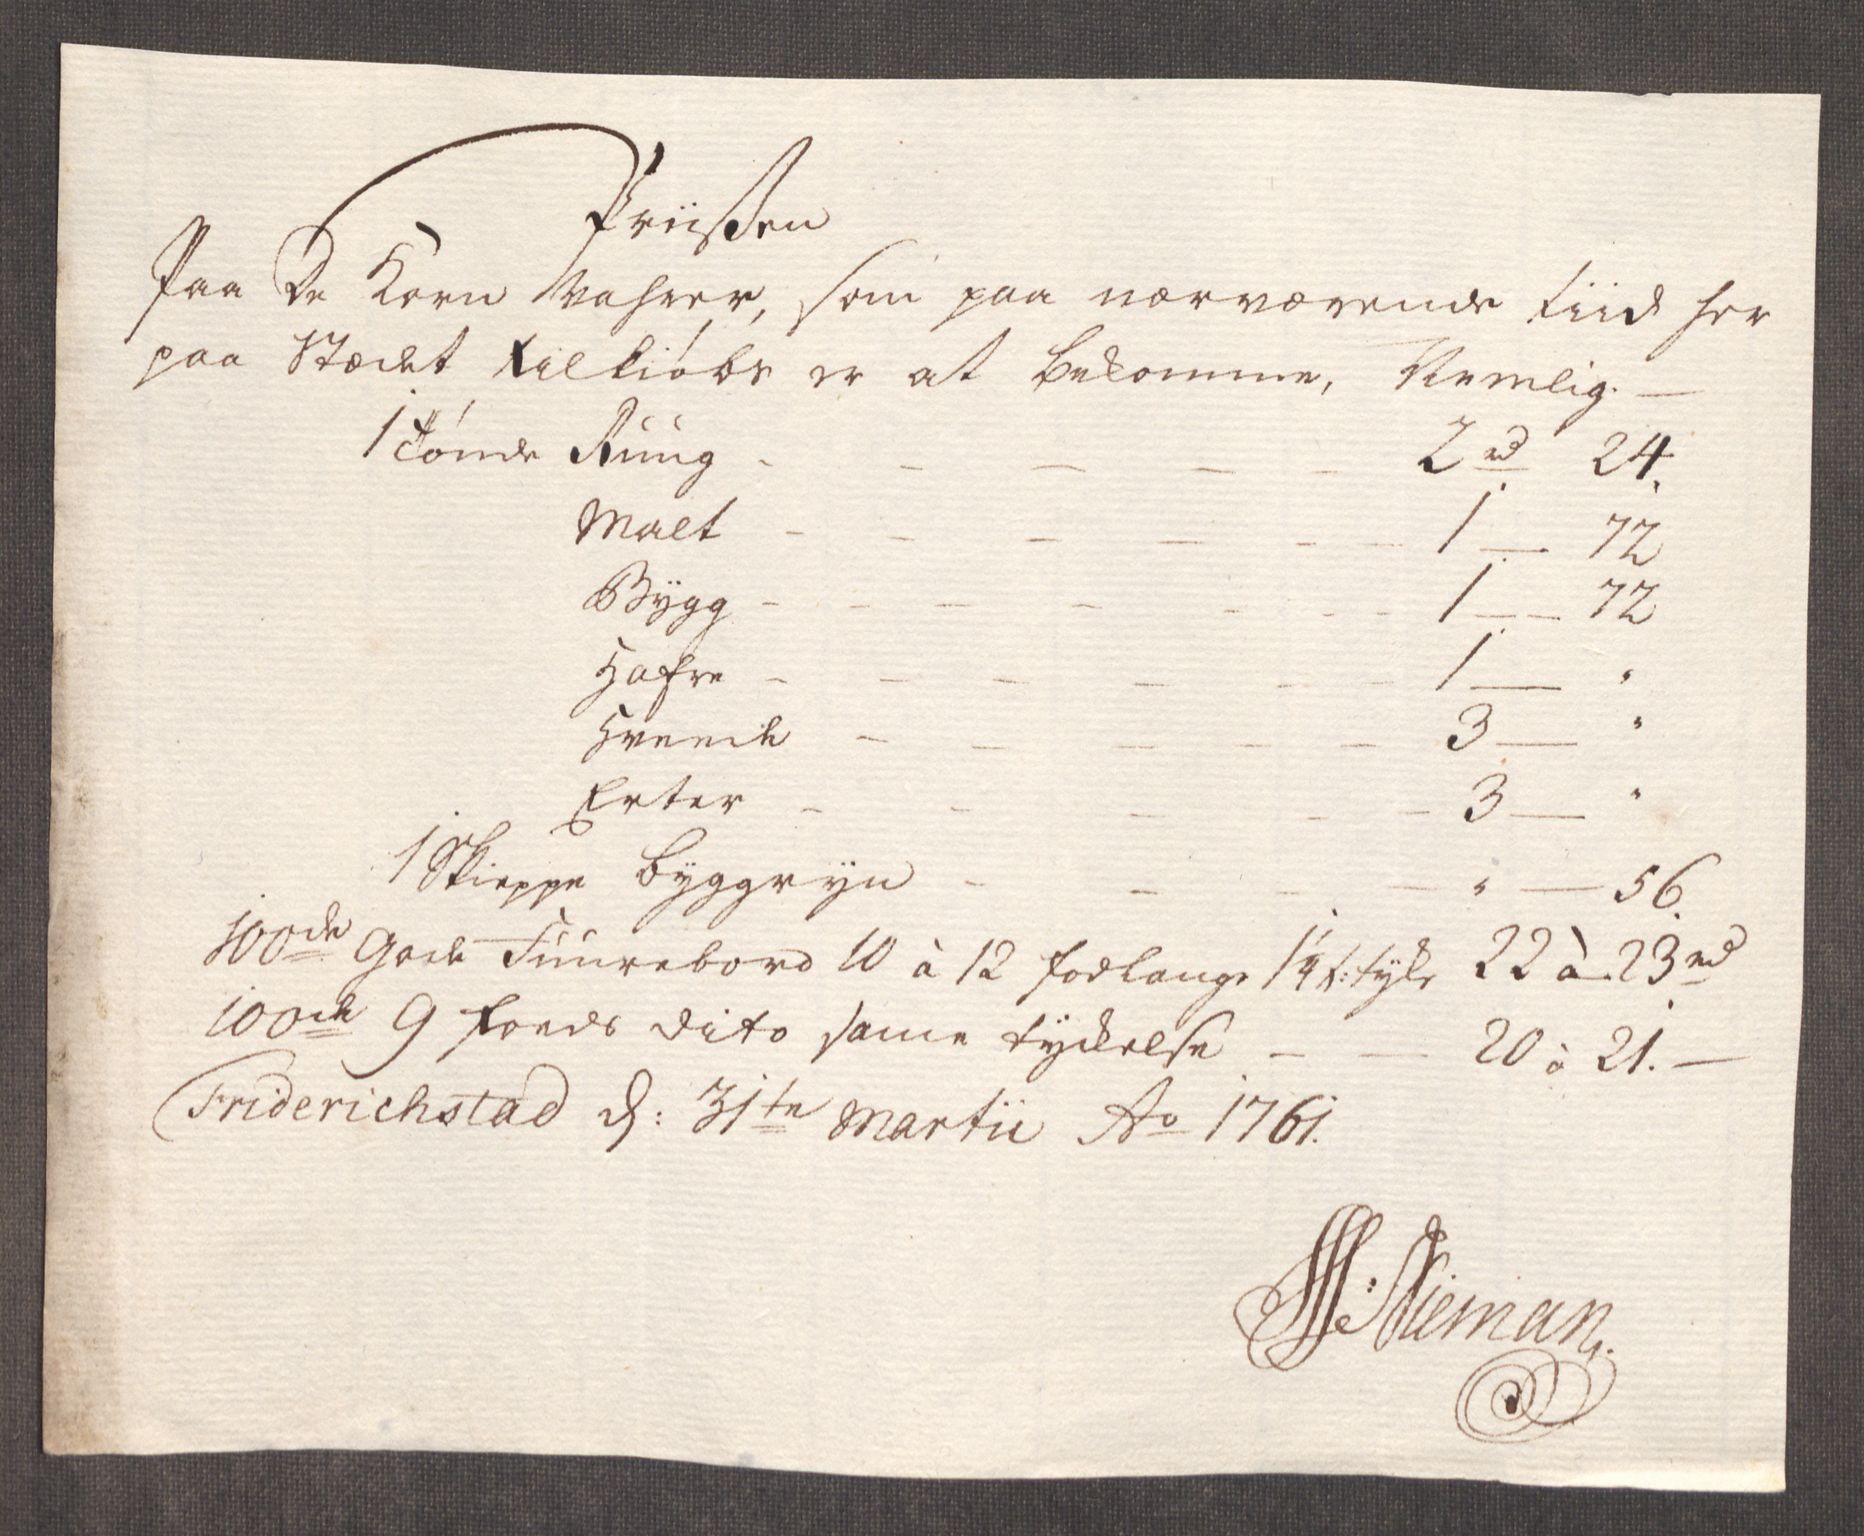 Priissen
Paa De Korn Wahrer, som paa nærværende tiid her
paa Stædet til kiøbs er at bekomme, Nemlig. —
1 Tønde Rüüg - - - - - 2 rd 24.
Malt - - - - - - 1 — 72
Bÿgg - - - - - - 1 — 72
Hafre - - - - - - 1 — "
Hveede - - - - - 3 — "
Erter - - - - - 3 — "
1 Skieppe byggryn - - - - " — 56.
100de gode Füürebord 10 à 12 fod lange 1 1/4 t: tÿke 22 à 23 rd
100de 9 foeds dito same tÿckelse — — 20 à 21. —
Friderichstad d: 31te Martii Ao 1761.
Nieman.